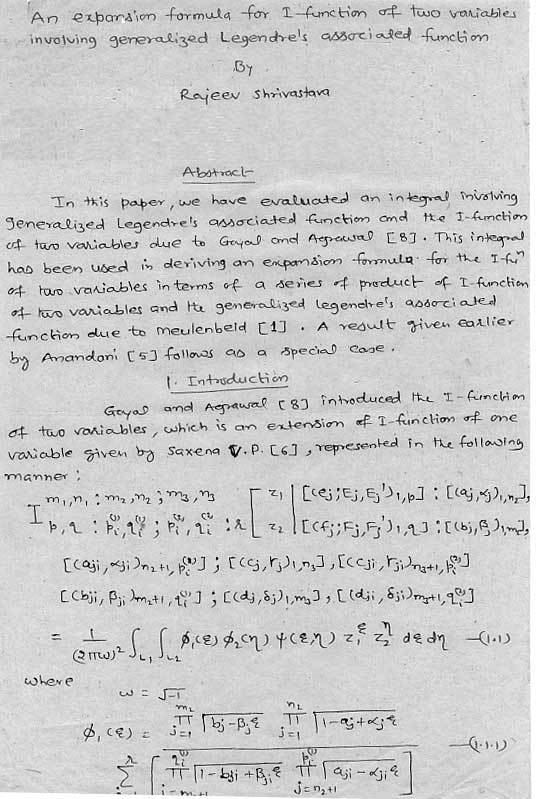 An expansion formula for I function of two variables
involving generalized Legendre's associated function
By
Rajeev Shrivastava
Abstract
In this paper, we have evaluated an integral involving
generalized Legendre's associated function and the I-function
of two variables due to Goyal and Agrawal [8]. This integral
has been used in deriving an expansion formula for the I-fun
of two variables in terms of a series of product of I-function
of two variables and the generalized legendre's associated
function due to meulenbeld [1]. A result given earlier
by Anandani [5] follows as a special case.
1. Introduction
Goyal and Agrawal [8] introduced the I-function
of two variables, which is an extension of I-function of one
variable given by Saxena V.P. [6], represented in the following
manner;
I^{m₁,n₁ : m₂,n₂ ; m₃,n₃}_{p,q : p_i^{(1)},q_i^{(1)} ; p_i^{(2)},q_i^{(2)} : r} [ z₁ | [(e_j;E_j,E_j')_{1,p}] : [(a_j,α_j)_{1,n₂}],
z₂ | [(f_j;F_j,F_j')_{1,q}] : [(b_j,β_j)_{1,m₂}],
[(a_{ji},α_{ji})_{n₂+1,p_i^{(1)}}] ; [(c_j,γ_j)_{1,n₃}], [(c_{ji},γ_{ji})_{n₃+1,p_i^{(2)}}]
[(b_{ji},β_{ji})_{m₂+1,q_i^{(1)}}] ; [(d_j,δ_j)_{1,m₃}], [(d_{ji},δ_{ji})_{m₃+1,q_i^{(2)}}]
= 1/(2πω)² ∫_{L₁} ∫_{L₂} φ₁(ξ) φ₂(η) ψ(ξ,η) z₁^ξ z₂^η dξ dη —(1.1)
where
ω = √-1
φ₁(ξ) = ∏_{j=1}^{m₂} Γ b_j-β_jξ ∏_{j=1}^{n₂} Γ 1-a_j+α_jξ
—(1.1.1)
∑^{r} [ ∏^{q_i^{(1)}} Γ 1-b_{ji}+β_{ji}ξ ∏_{j=n₂+1}^{p_i^{(1)}} Γ a_{ji}-α_{ji}ξ ]